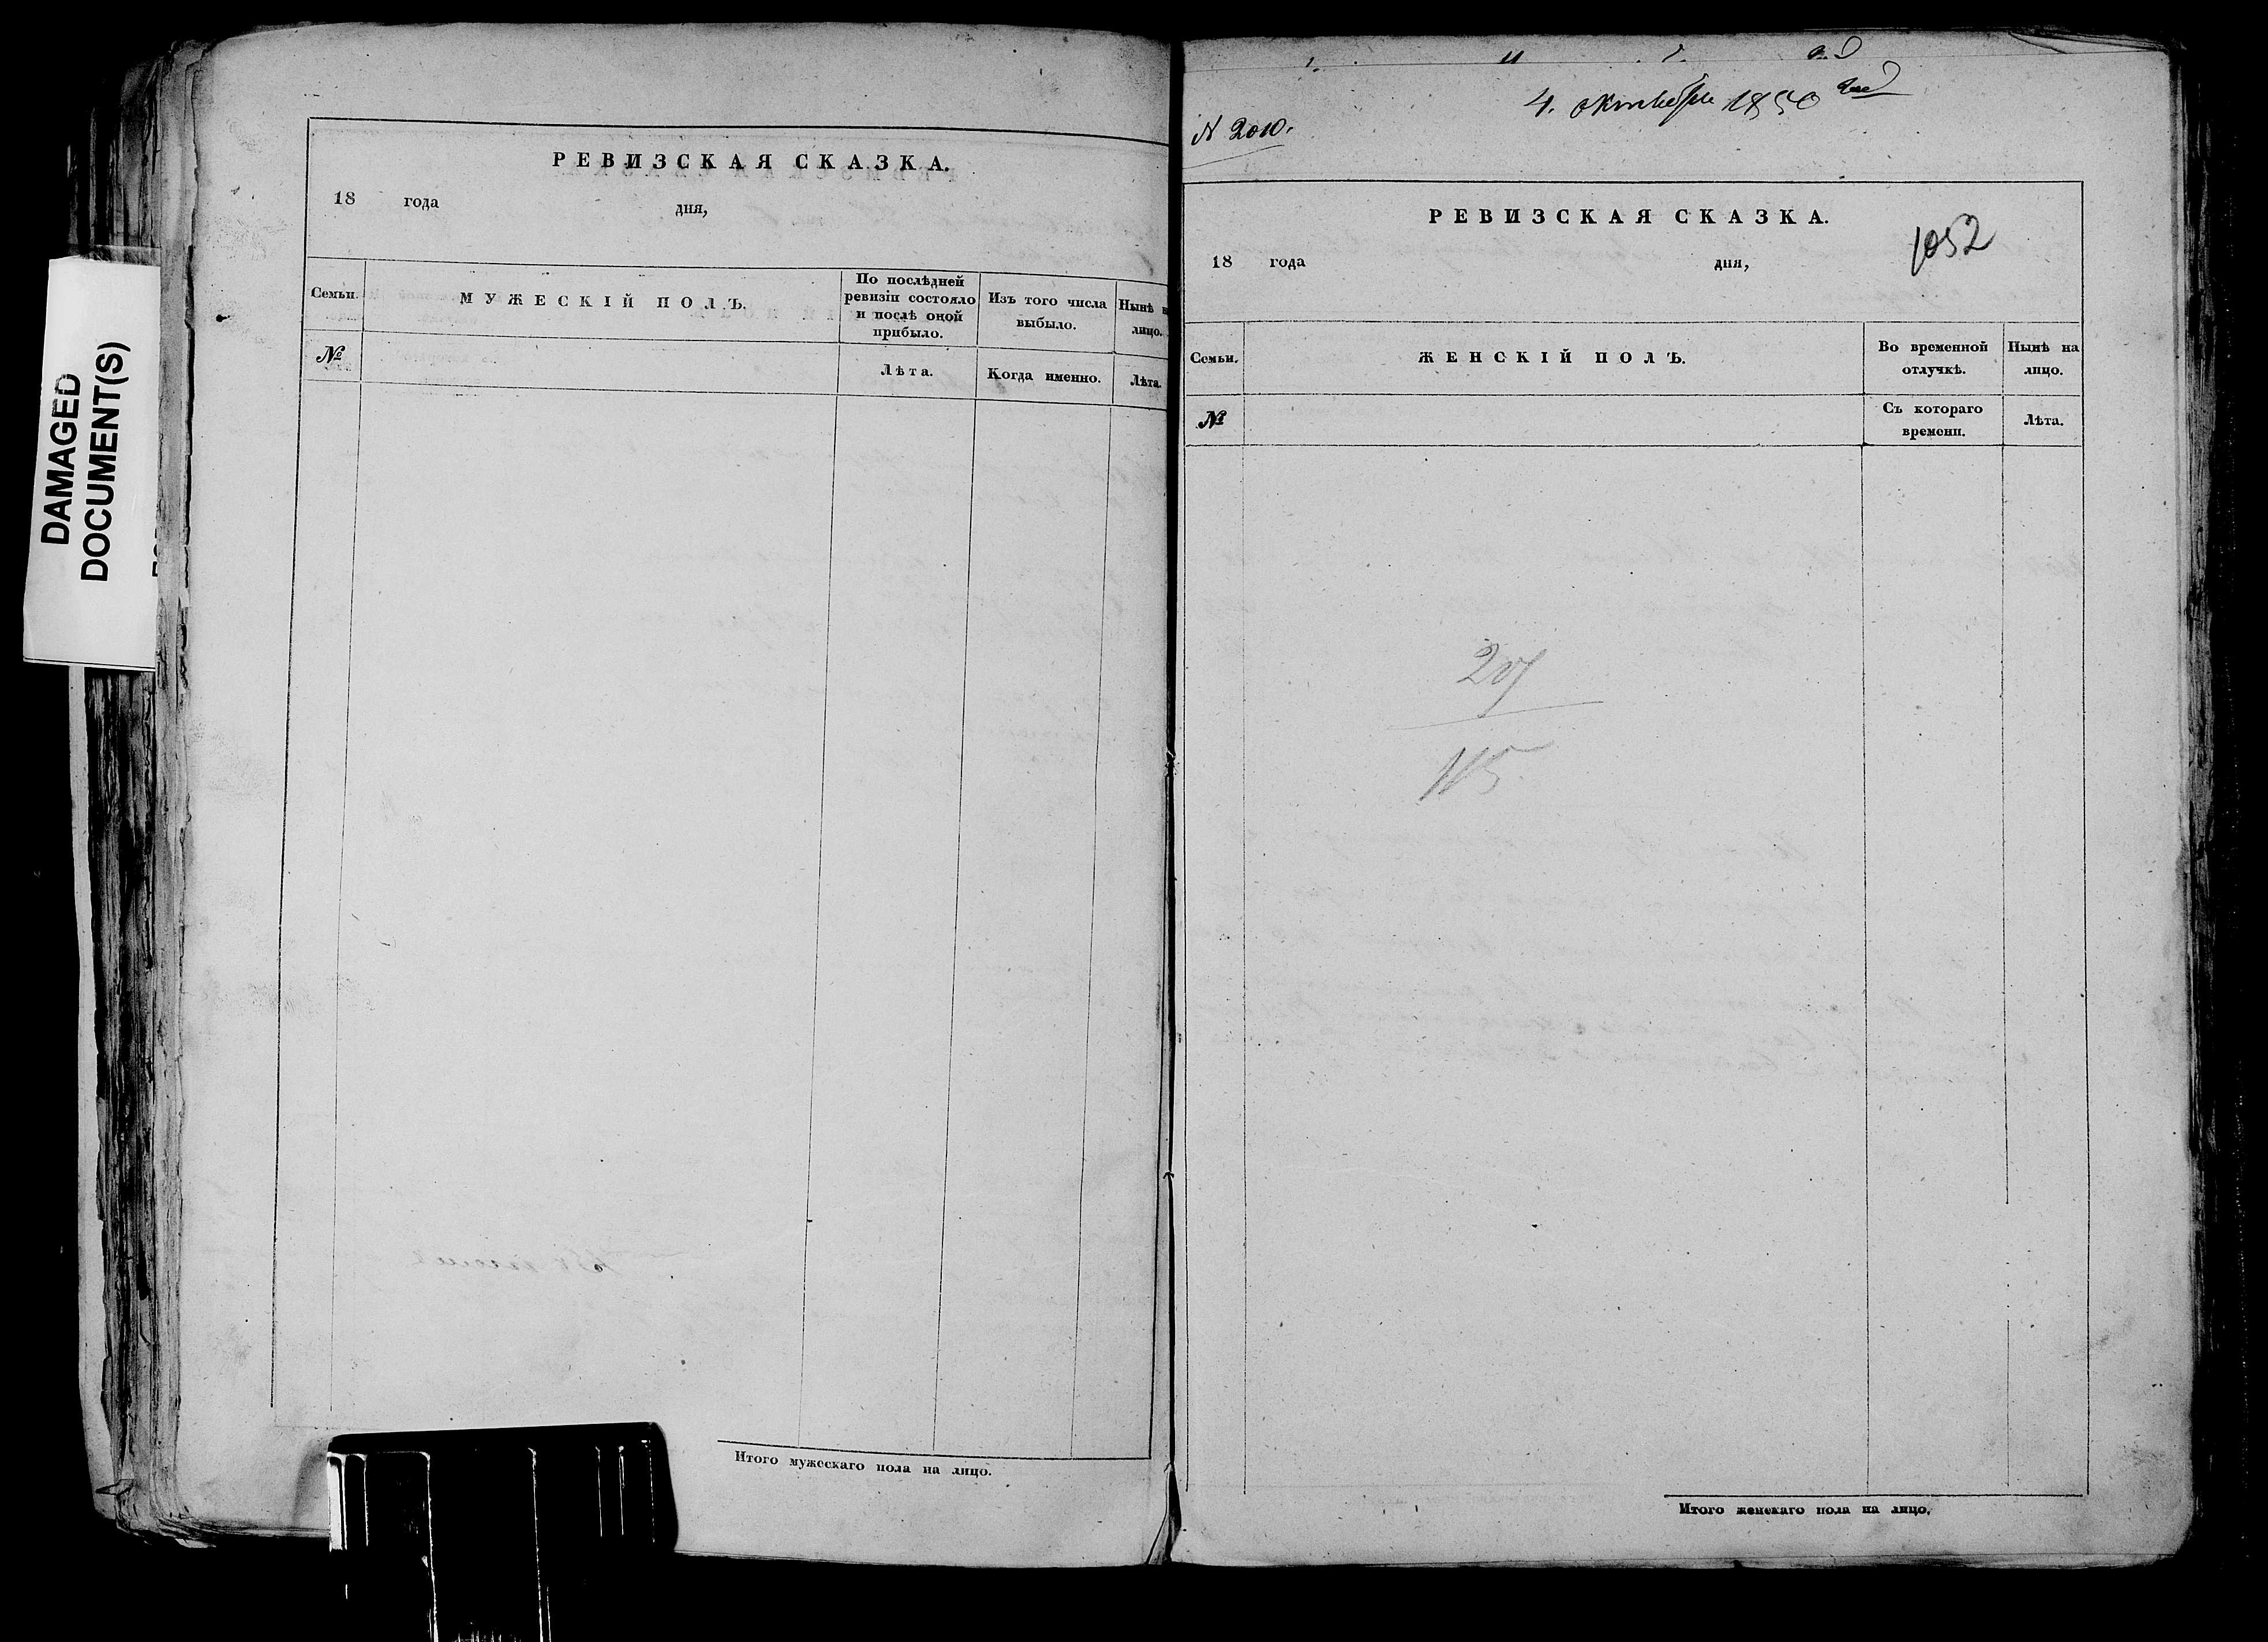 DAMAGED
DOCUMENT(S)
РЕВИЗСКАЯ СКАЗКА.
18 года дня,
Семьи.
МУЖЕСКІЙ ПОЛЪ.
По послѣдней
ревизіи состояло
и послѣ оной
прибыло.
Изъ того числа
выбыло.
Нынѣ н
лицо.
№
Лѣта.
Когда именно.
Лѣта.
Итого мужескаго пола на лицо.
4. октября 1850 года
N 2010.
РЕВИЗСКАЯ СКАЗКА.
1052
18 года дня,
Семьи.
ЖЕНСКІЙ ПОЛЪ.
Во временной
отлучкѣ.
Нынѣ на
лицо.
№
Съ котораго
времени.
Лѣта.
115
Итого женскаго пола на лицо.